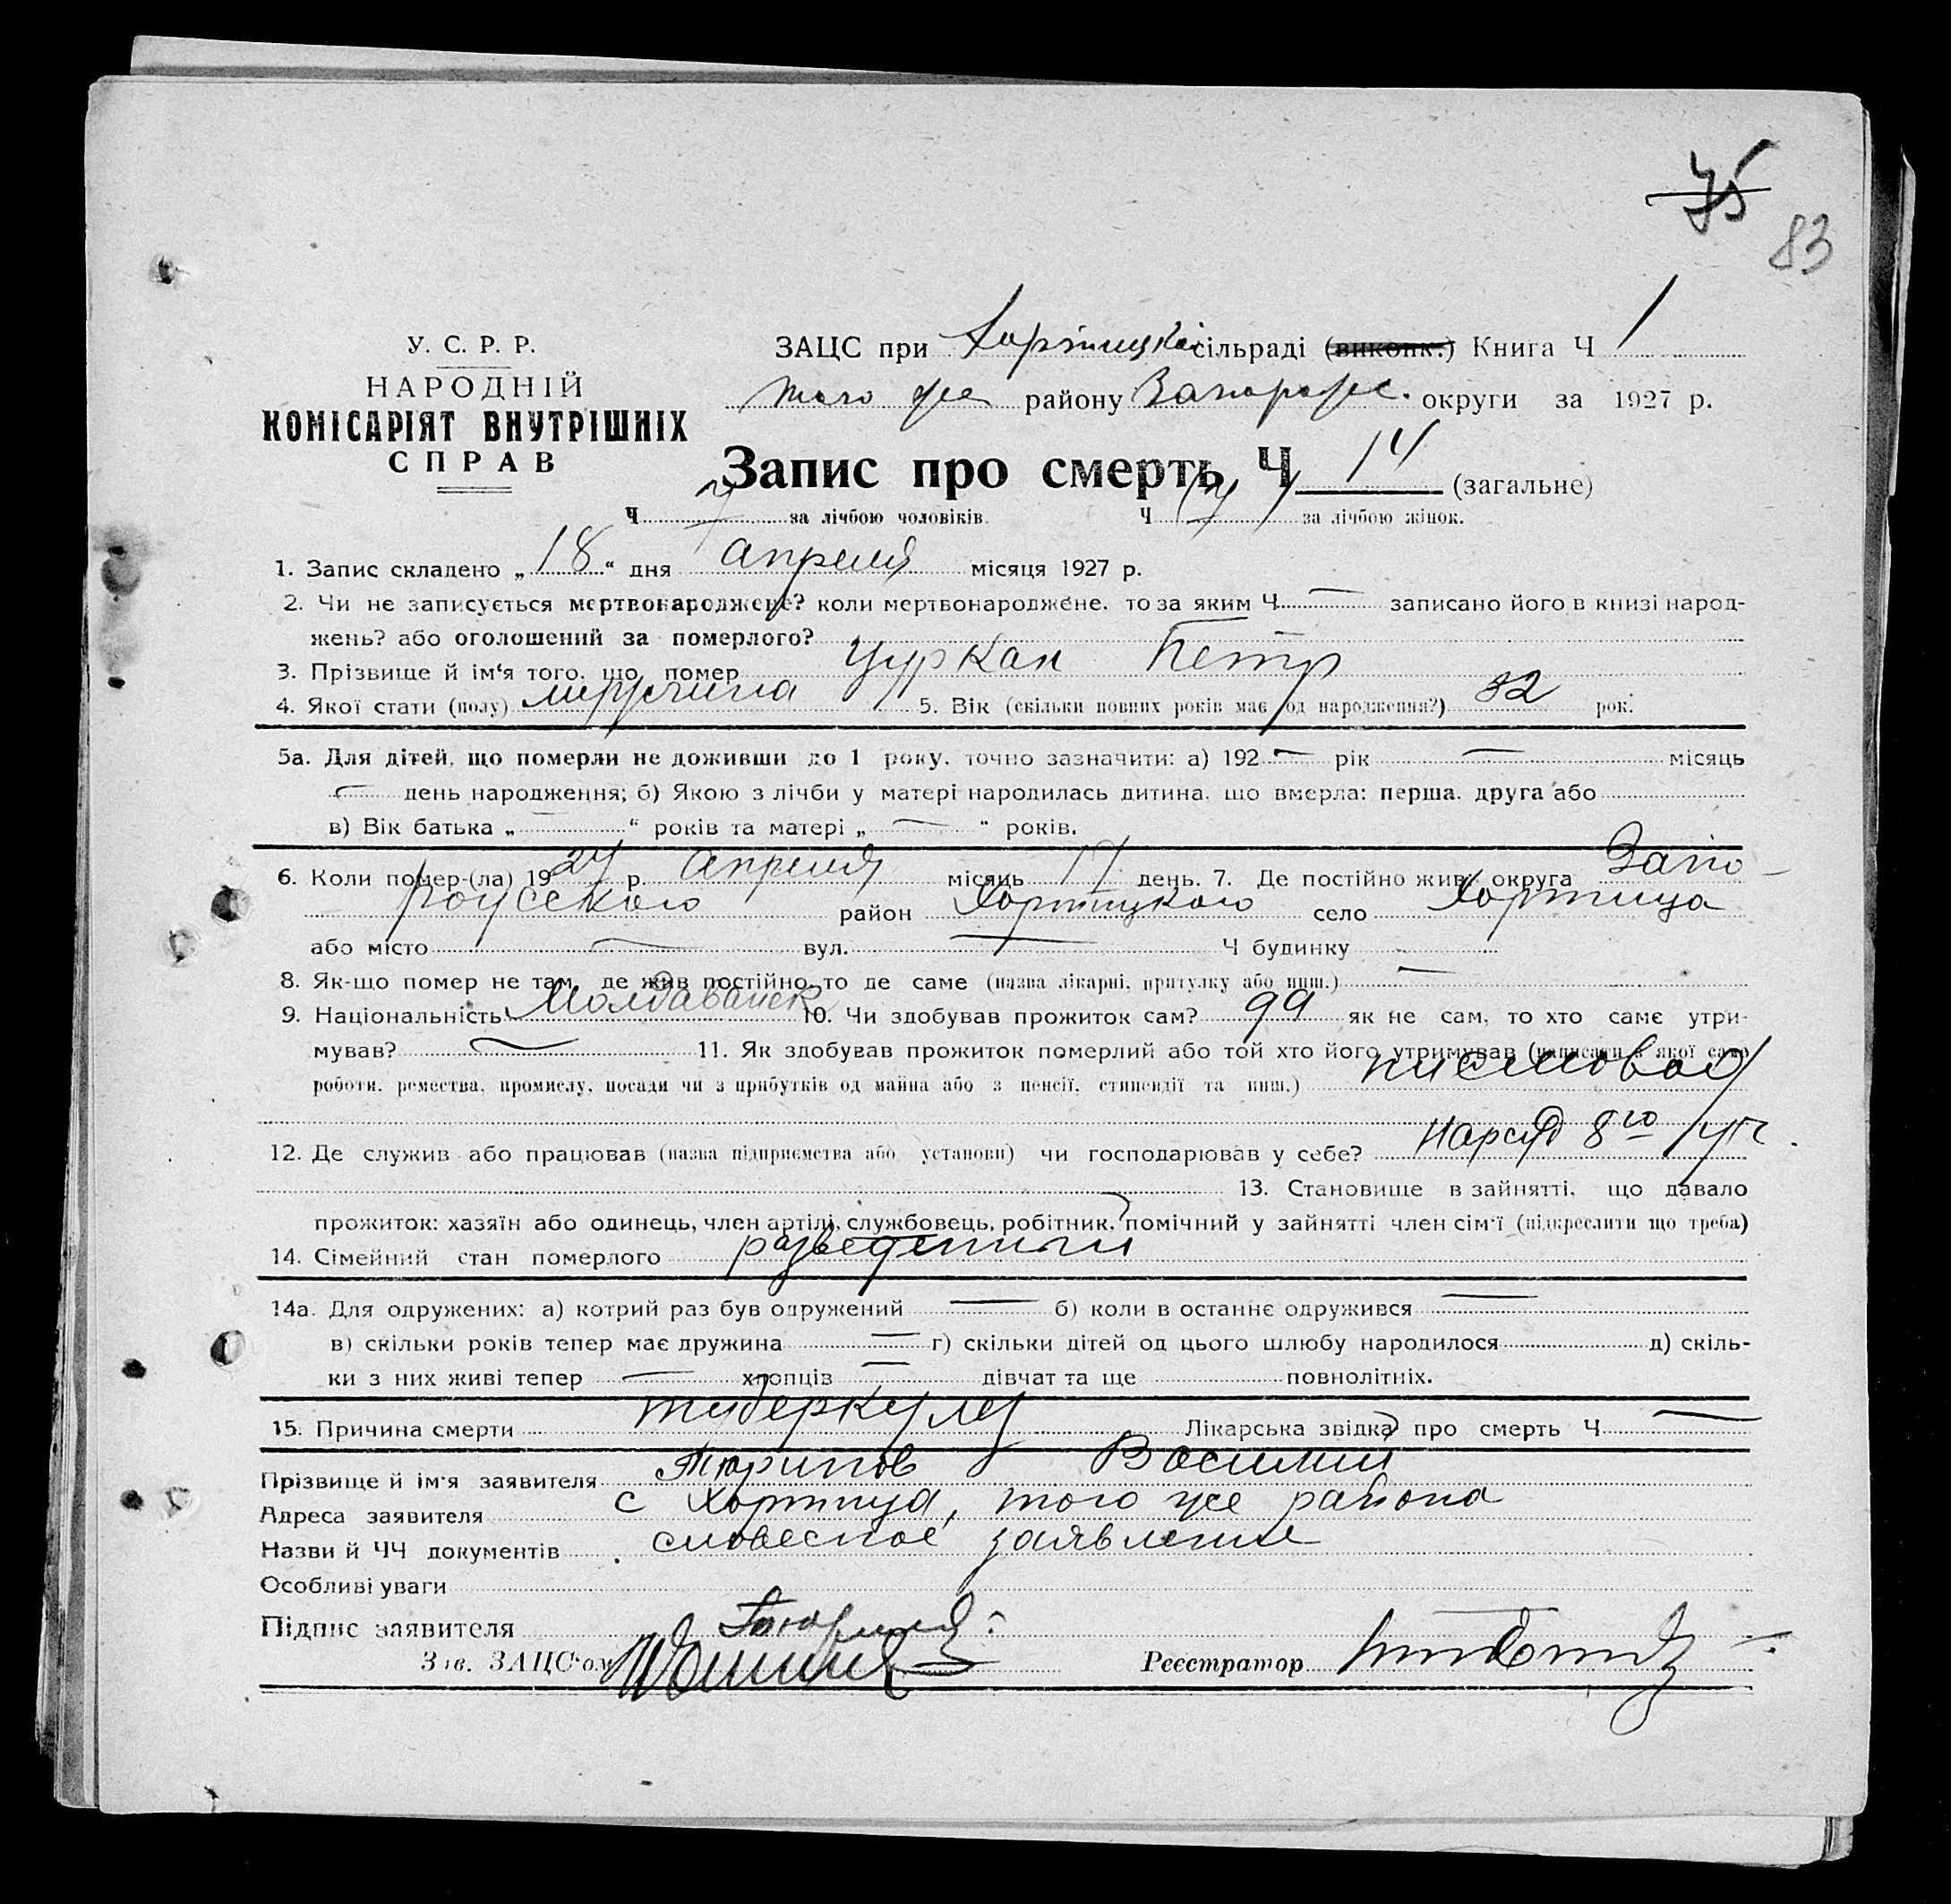 75
83
У. С. Р. Р.
НАРОДНІЙ
КОМІСАРІЯТ ВНУТРІШНІХ
СПРАВ
ЗАЦС при Хортицкій сільраді (виконк.) Книга Ч 1
того же району Запорож. округи за 1927 р.
Запис про смерть Ч 14 (загальне)
Ч 7 за лічбою чоловіків. Ч 7 за лічбою жінок.
1. Запис складено „18“ дня апреля місяця 1927 р.
2. Чи не записується мертвонароджене? коли мертвонароджене, то за яким Ч — записано його в книзі народ-
жень? або оголошений за померлого? —
3. Прізвище й ім'я того, що помер Цуркан Петр
4. Якої стати (полу) мужчина 5. Вік (скільки повних років має од народження?) 32 рок.
5а. Для дітей, що померли не доживши до 1 року, точно зазначити: а) 192 — рік — місяць
— день народження; б) Якою з лічби у матері народилась дитина, що вмерла: перша, друга або
в) Вік батька „ — “ років та матері „ — “ років.
6. Коли помер-(ла) 1927 р. апреля місяць 17 день. 7. Де постійно жив: округа Запо-
рожского район Хортицкого село Хортица
або місто — вул. — Ч будинку
8. Як-що помер не там, де жив постійно, то де саме (назва лікарні, притулку або инш.) —
9. Національність Молдаванск 10. Чи здобував прожиток сам? да як не сам, то хто саме утри-
мував? — 11. Як здобував прожиток померлий або той хто його утримував (написати з якої само
роботи, ремества, промислу, посади чи з прибутків од майна або з пенсії, стипендії та инш.)
12. Де служив або працював (назва підприємства або установи) чи господарював у себе? Нарсуд 8го уч.
13. Становище в зайнятті, що давало
прожиток: хазяїн або одинець, член артілі, службовець, робітник, помічний у зайнятті член сім'ї (підкреслити що треба)
14. Сімейний стан померлого разведенный
14а. Для одружених: а) котрий раз був одружений — б) коли в останнє одружився —
в) скільки років тепер має дружина — г) скільки дітей од цього шлюбу народилося д) скіль-
ки з них живі тепер — хлопців — дівчат та ще повнолітніх.
15. Причина смерти туберкулез Лікарська звідка про смерть Ч —
Прізвище й ім'я заявителя Василий
Адреса заявителя с Хортица, того же района
Назви й ЧЧ документів словесное заявление
Особливі уваги
Підпис заявителя
Зав. ЗАЦС'ом Реєстратор